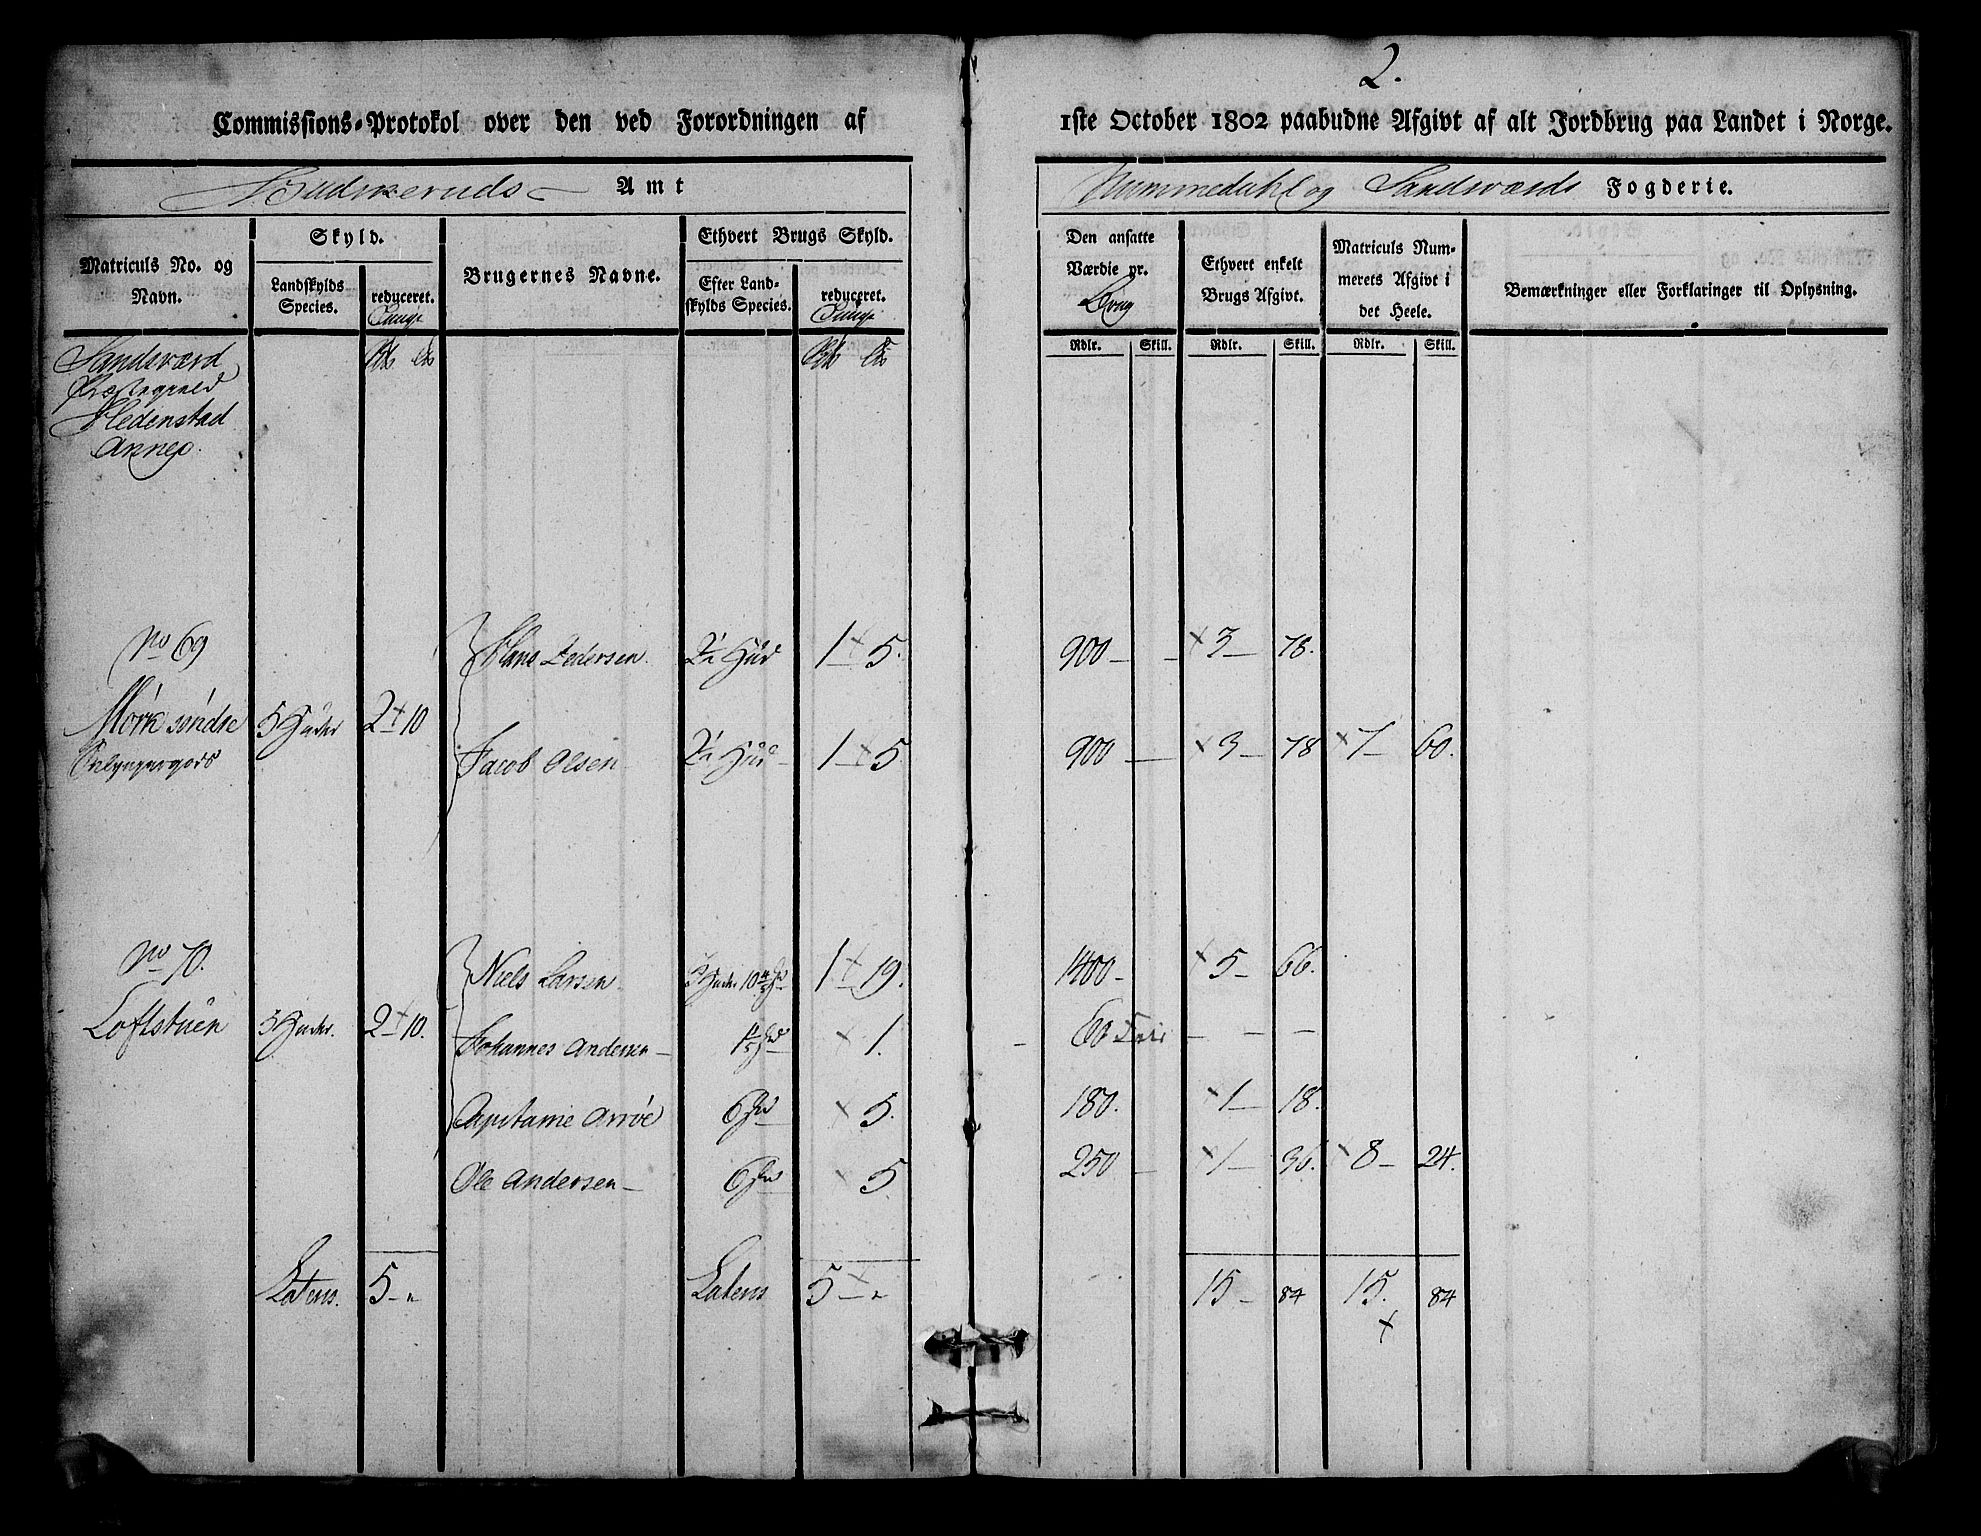 2.
Commissions-Protokol over den ved Forordningen af 1ste October 1802 paabudne Afgivt af alt Jordbrug paa Landet i Norge.
Buskeruds Amt
Nummedahl og Sandsværds Fogderie.
Matriculs No. og Navn.
Skyld.
Landskylds Species.
reduceret.
Tunge
Brugernes Navne.
Ethvert Brugs Skyld.
Efter Landskylds Species.
reduceret.
Tunge
Den ansatte Værdie pr.
Brug
Ethvert enkelt Brugs Afgivt.
Matriculs Nummerets Afgivt i det Heele.
Bemærkninger eller Forklaringer til Oplysning.
Rdlr. Skill. Rdlr. Skill. Rdlr. Skill.
Sandsværd
Præstegield
Hedenstad
Annex.
No 69 Hans Pedersen. 2½ Hud 1 5. 900 — 3 — 78.
Mørk søndre 5 Huder 2 10
Jacob Olsen 2½ Hud 1 5 900 — 3 — 78 7 — 60.
No 70. Niels Larsen 1 19. 1400 — 5 — 66.
Loftstuen 5 Huder. 2 10.
Johannes Andersen — 1. 60 Frie — — —
Capitaine Arröe 6 5. 180. 1 — 18.
Ole Andersen — 6 5 250 — 1 — 36. 8 — 24.
Latus. 5 — „ Latus 5 — „ 15 — 84 15. 84